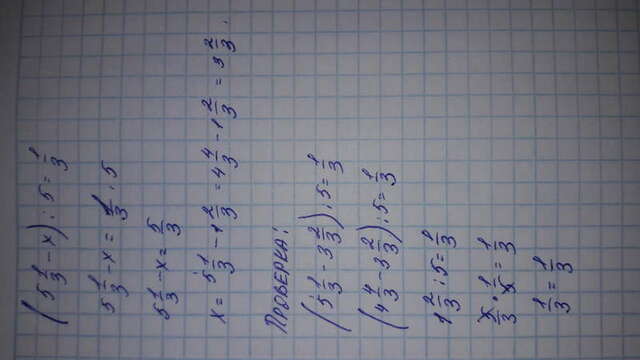 (5 1/3 - x) : 5 = 1/3
5 1/3 - x = 1/3 · 5
5 1/3 - x = 5/3
x = 5 1/3 - 1 2/3 = 4 4/3 - 1 2/3 = 3 2/3.
ПРОВЕРКА:
(5 1/3 - 3 2/3) : 5 = 1/3
(4 4/3 - 3 2/3) : 5 = 1/3
1 2/3 : 5 = 1/3
5/3 · 1/5 = 1/3
1/3 = 1/3